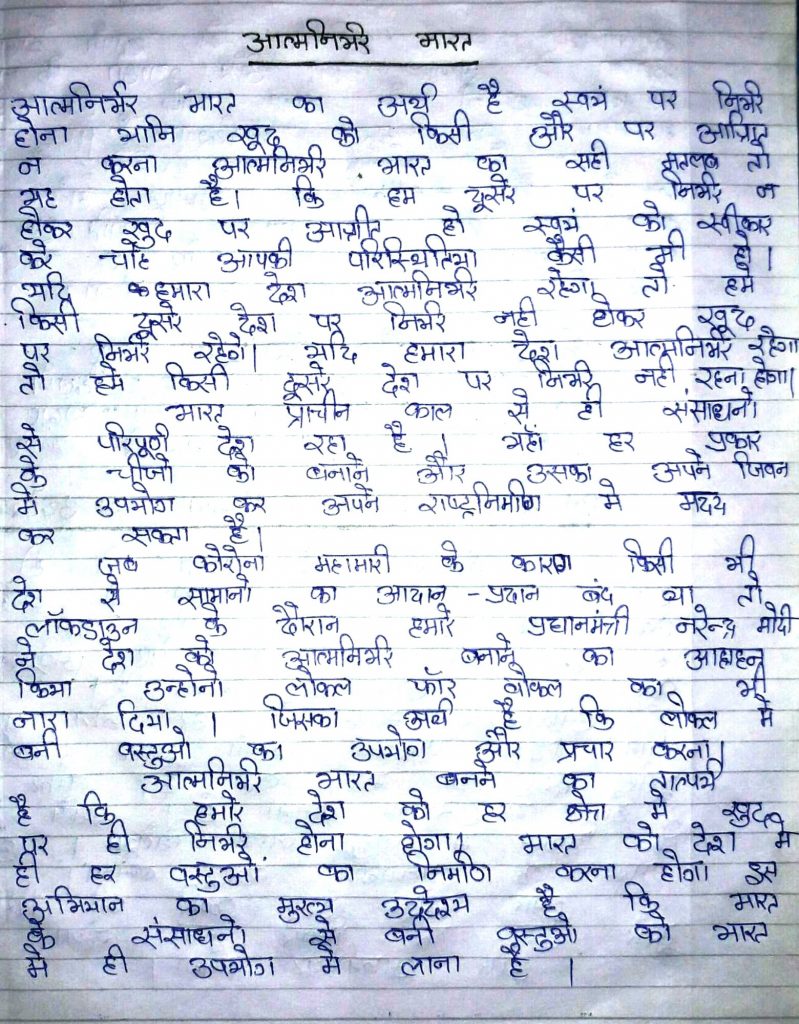 आत्मनिर्भर भारत
आत्मनिर्भर भारत का अर्थ है स्वयं पर निर्भर
होना यानि खुद को किसी और पर आश्रित
न करना आत्मनिर्भर भारत का सही मतलब तो
यह होता है। कि हम दूसरे पर निर्भर न
होकर खुद पर आश्रीत हो स्वयं को स्वीकार
करे चाहे आपकी परिस्थितिया कैसी भी हो।
यदि हमारा देश आत्मनिर्भर रहेगा तो हमे
किसी दूसरे देश पर निर्भर नही होकर खुद
पर निर्भर रहेगे। यदि हमारा देश आत्मनिर्भर रहेगा
तो हमे किसी दूसरे देश पर निर्भर नही रहना होगा।
भारत प्राचीन काल से ही संसाधनो
से परिपूर्ण देश रहा है। यहाँ हर प्रकार
के चीजो को बनाने और उसका अपने जिवन
मे उपयोग कर अपने राष्ट्रनिर्माण मे मदद
कर सकता है।
जब कोरोना महामारी के कारण किसी भी
देश से सामानो का आदान-प्रदान बंद था तो
लॉकडाउन के दौरान हमारे प्रधानमंत्री नरेन्द्र मोदी
ने देश को आत्मनिर्भर बनाने का
किया उन्होनो लोकल फॉर वोकल का भी
नारा दिया। जिसका अर्थ है कि लोकल मे
बनी वस्तुओ का उपयोग और प्रचार करना।
आत्मनिर्भर भारत बनने का तात्पर्य
है कि हमारे देश को हर क्षेत्र मे खुद
पर ही निर्भर होना होगा। भारत को देश मे
ही हर वस्तुओ का निर्माण करना होगा इस
अभियान का मुख्य उद्देश्य है कि भारत
के संसाधनो से बनी वस्तुओ को भारत
मे ही उपयोग मे लाना है।